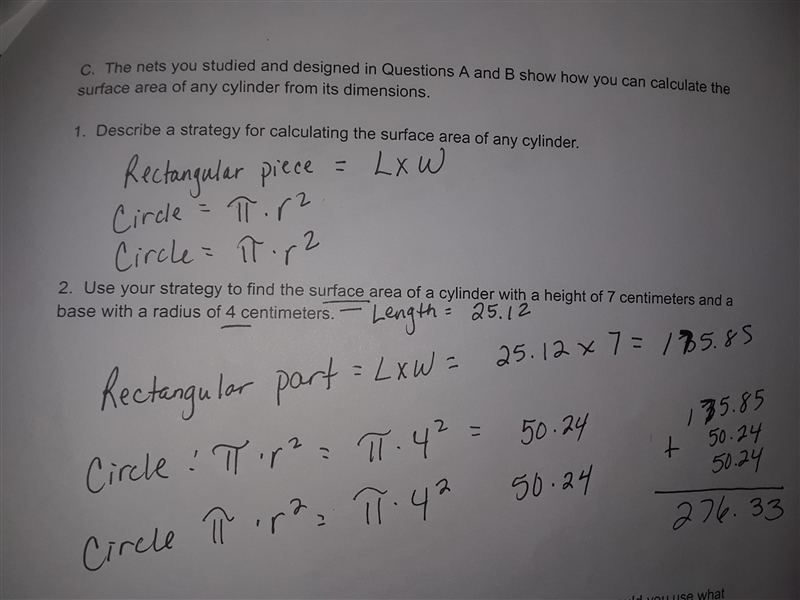 C. The nets you studied and designed in Questions A and B show how you can calculate the
surface area of any cylinder from its dimensions.
1. Describe a strategy for calculating the surface area of any cylinder.
Rectangular piece = L x W
Circle = π · r²
Circle = π · r²
2. Use your strategy to find the surface area of a cylinder with a height of 7 centimeters and a
base with a radius of 4 centimeters. — Length = 25.12
Rectangular part = L x W = 25.12 x 7 = 175.85
Circle : π · r² = π · 4² = 50.24
Circle π · r² = π · 4² 50.24
175.85
+ 50.24
50.24
276.33
you use what